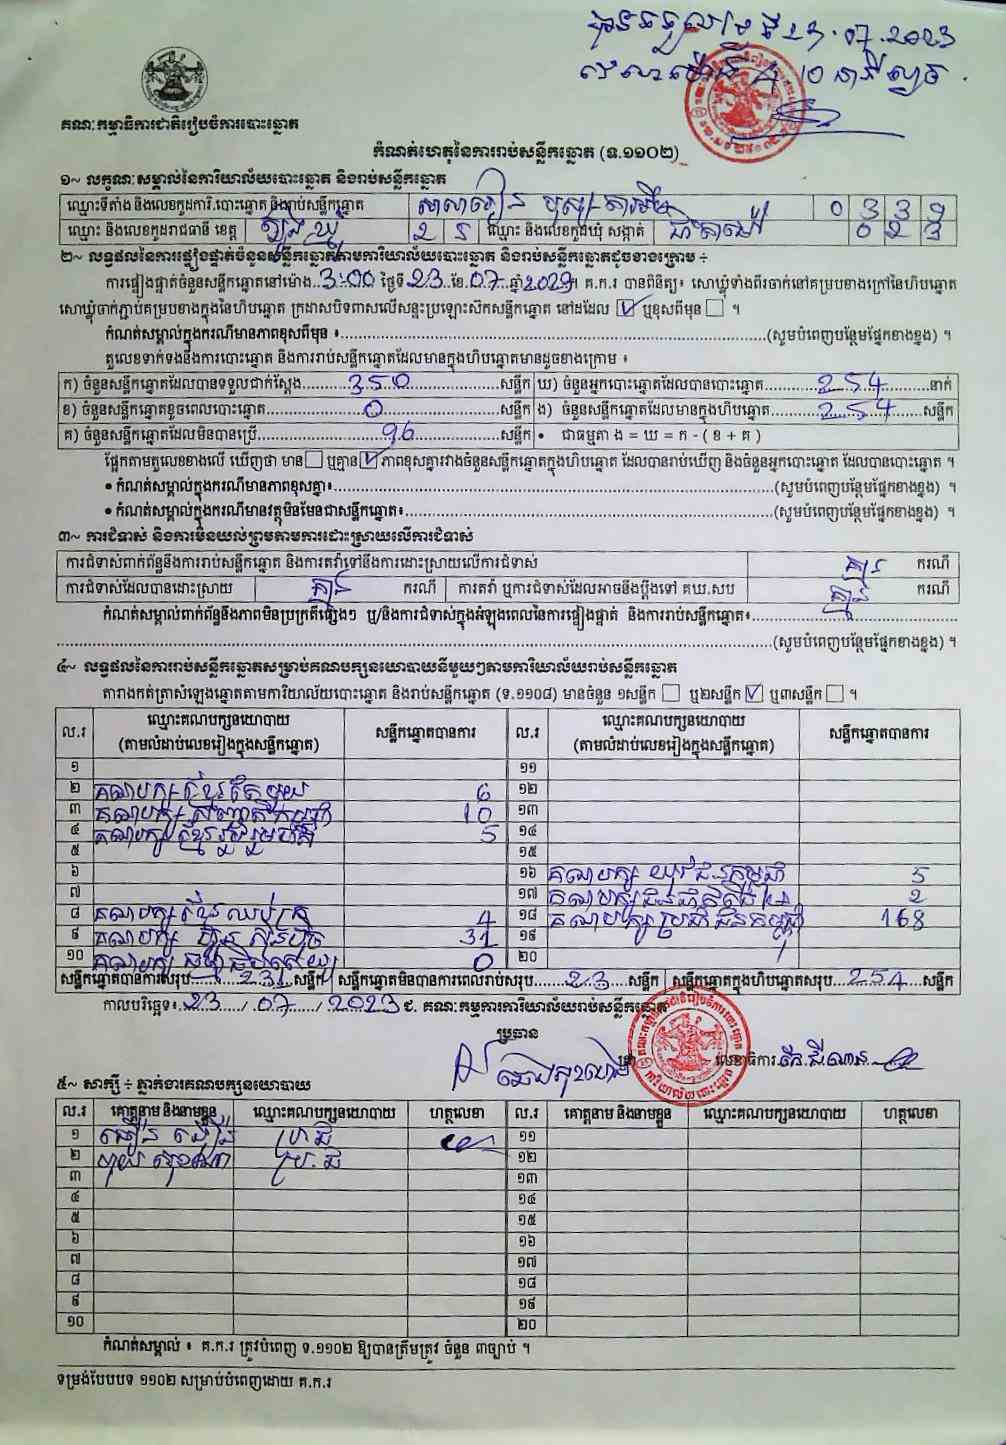 បានទទួលថ្ងៃទី 23.07.2023
វេលាម៉ោង 4 10 នាទីល្ងាច
គណៈកម្មាធិការជាតិរៀបចំការបោះឆ្នោត
កំណត់ហេតុនៃការរាប់សន្លឹកឆ្នោត (ទ.១១០២)
១~ លក្ខណៈសម្គាល់នៃការិយាល័យបោះឆ្នោត និងរាប់សន្លឹកឆ្នោត
ឈ្មោះទីតាំង និងលេខកូដការិ.បោះឆ្នោត និងរាប់សន្លឹកឆ្នោត សាលារៀន
ឈ្មោះ និងលេខកូដរាជធានី ខេត្ត ត្បូងឃ្មុំ 2 5 ឈ្មោះ និងលេខកូដឃុំ សង្កាត់
២~ លទ្ធផលនៃការផ្ទៀងផ្ទាត់ចំនួនសន្លឹកឆ្នោតតាមការិយាល័យបោះឆ្នោត និងរាប់សន្លឹកឆ្នោតដូចខាងក្រោម ÷
ការផ្ទៀងផ្ទាត់ចំនួនសន្លឹកឆ្នោតនៅម៉ោង..3:00 ថ្ងៃទី..23..ខែ..07..ឆ្នាំ2023។ គ.ក.រ បានពិនិត្យ៖ សោឃ្លុំទាំងពីរចាក់នៅគម្របខាងក្រៅនៃហិបឆ្នោត
សោឃ្លុំចាក់ភ្ជាប់គម្របខាងក្នុងនៃហិបឆ្នោត ក្រដាសបិទពាសលើសន្ទះប្រឡោះសិកសន្លឹកឆ្នោត នៅដដែល ☑ ឬខុសពីមុន ☐ ។
កំណត់សម្គាល់ក្នុងករណីមានភាពខុសពីមុន ៖........(សូមបំពេញបន្ថែមផ្នែកខាងខ្នង) ។
តួលេខទាក់ទងនឹងការបោះឆ្នោត និងការរាប់សន្លឹកឆ្នោតដែលមានក្នុងហិបឆ្នោតមានដូចខាងក្រោម ៖
ក) ចំនួនសន្លឹកឆ្នោតដែលបានទទួលជាក់ស្តែង....350....សន្លឹក ឃ) ចំនួនអ្នកបោះឆ្នោតដែលបានបោះឆ្នោត....254....នាក់
ខ) ចំនួនសន្លឹកឆ្នោតខូចពេលបោះឆ្នោត....0....សន្លឹក ង) ចំនួនសន្លឹកឆ្នោតដែលមានក្នុងហិបឆ្នោត....254....សន្លឹក
គ) ចំនួនសន្លឹកឆ្នោតដែលមិនបានប្រើ....96....សន្លឹក • ជាធម្មតា ង = ឃ = ក - ( ខ + គ )
ផ្អែកតាមតួលេខខាងលើ ឃើញថា មាន ☐ ឬគ្មាន ☑ ភាពខុសគ្នារវាងចំនួនសន្លឹកឆ្នោតក្នុងហិបឆ្នោត ដែលបានរាប់ឃើញ និងចំនួនអ្នកបោះឆ្នោត ដែលបានបោះឆ្នោត ។
• កំណត់សម្គាល់ក្នុងករណីមានភាពខុសគ្នា៖........(សូមបំពេញបន្ថែមផ្នែកខាងខ្នង) ។
• កំណត់សម្គាល់ក្នុងករណីមានវត្ថុមិនមែនជាសន្លឹកឆ្នោត៖........(សូមបំពេញបន្ថែមផ្នែកខាងខ្នង) ។
៣~ ការជំទាស់ និងការមិនយល់ព្រមតាមការដោះស្រាយលើការជំទាស់
ការជំទាស់ពាក់ព័ន្ធនឹងការរាប់សន្លឹកឆ្នោត និងការតវ៉ាទៅនឹងការដោះស្រាយលើការជំទាស់ គ្មាន ករណី
ការជំទាស់ដែលបានដោះស្រាយ គ្មាន ករណី ការតវ៉ា ឬការជំទាស់ដែលអាចនឹងប្តឹងទៅ គឃ.សប គ្មាន ករណី
កំណត់សម្គាល់ពាក់ព័ន្ធនឹងភាពមិនប្រក្រតីផ្សេងៗ ឬ/និងការជំទាស់ក្នុងអំឡុងពេលនៃការផ្ទៀងផ្ទាត់ និងការរាប់សន្លឹកឆ្នោត៖........
........(សូមបំពេញបន្ថែមផ្នែកខាងខ្នង) ។
៤~ លទ្ធផលនៃការរាប់សន្លឹកឆ្នោតសម្រាប់គណបក្សនយោបាយនីមួយៗតាមការិយាល័យរាប់សន្លឹកឆ្នោត
តារាងកត់ត្រាសំឡេងឆ្នោតតាមការិយាល័យបោះឆ្នោត និងរាប់សន្លឹកឆ្នោត (ទ.១១០៨) មានចំនួន ១សន្លឹក ☐ ឬ២សន្លឹក ☑ ឬ៣សន្លឹក ☐ ។
ល.រ ឈ្មោះគណបក្សនយោបាយ (តាមលំដាប់លេខរៀងក្នុងសន្លឹកឆ្នោត) សន្លឹកឆ្នោតបានការ ល.រ ឈ្មោះគណបក្សនយោបាយ (តាមលំដាប់លេខរៀងក្នុងសន្លឹកឆ្នោត) សន្លឹកឆ្នោតបានការ
១ ១១
២ គណបក្សខ្មែរតែមួយ 6 ១២
៣ គណបក្ស សញ្ជាតិកម្ពុជា 10 ១៣
៤ គណបក្សខ្មែររួបរួមជាតិ 5 ១៤
៥ ១៥
៦ ១៦ គណបក្ស យុវជនកម្ពុជា 5
៧ ១៧ 2
៨ គណបក្សខ្មែរឈប់ក្រ 4 ១៨ គណបក្សប្រជាជនកម្ពុជា 168
៩ គណបក្ស ហ្វ៊ុនស៊ិនប៉ិច 31 ១៩
១០ គណបក្ស ធម្មាធិបតេយ្យ 0 ២០
សន្លឹកឆ្នោតបានការសរុប....231..សន្លឹក សន្លឹកឆ្នោតមិនបានការពេលរាប់សរុប....23....សន្លឹក សន្លឹកឆ្នោតក្នុងហិបឆ្នោតសរុប...254....សន្លឹក
កាលបរិច្ឆេទ៖..23..../..07..../..2023 ជ. គណៈកម្មការការិយាល័យរាប់សន្លឹកឆ្នោត
ប្រធាន
លេខាធិការ
៥~ សាក្សី ÷ ភ្នាក់ងារគណបក្សនយោបាយ
ល.រ គោត្តនាម និងនាមខ្លួន ឈ្មោះគណបក្សនយោបាយ ហត្ថលេខា ល.រ គោត្តនាម និងនាមខ្លួន ឈ្មោះគណបក្សនយោបាយ ហត្ថលេខា
១ ប្រ.ជ ១១
២ ប្រ.ជ ១២
៣ ១៣
៤ ១៤
៥ ១៥
៦ ១៦
៧ ១៧
៨ ១៨
៩ ១៩
១០ ២០
កំណត់សម្គាល់ ៖ គ.ក.រ ត្រូវបំពេញ ទ.១១០២ ឱ្យបានត្រឹមត្រូវ ចំនួន ៣ច្បាប់ ។
ទម្រង់បែបបទ ១១០២ សម្រាប់បំពេញដោយ គ.ក.រ